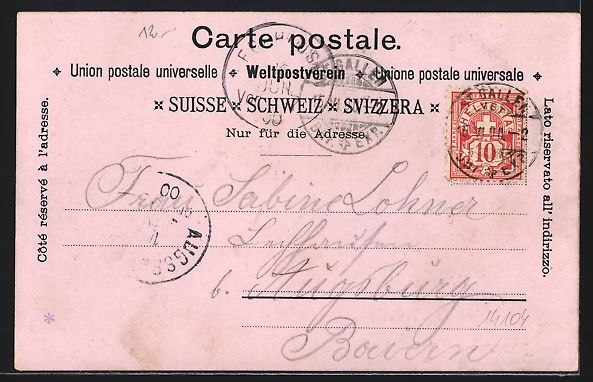 12.-
Carte postale.
Union postale universelle Weltpostverein Unione postale universale
SUISSE SCHWEIZ SVIZZERA
Nur für die Adresse.
Côté réservé à l'adresse.
Lato riservato all' indirizzo.
GALLEN
EXP.
GALLEN
HELVETIA
10
00
AUGSB
Frau Sabine Lohner
b. Augsburg
Baiern
14104